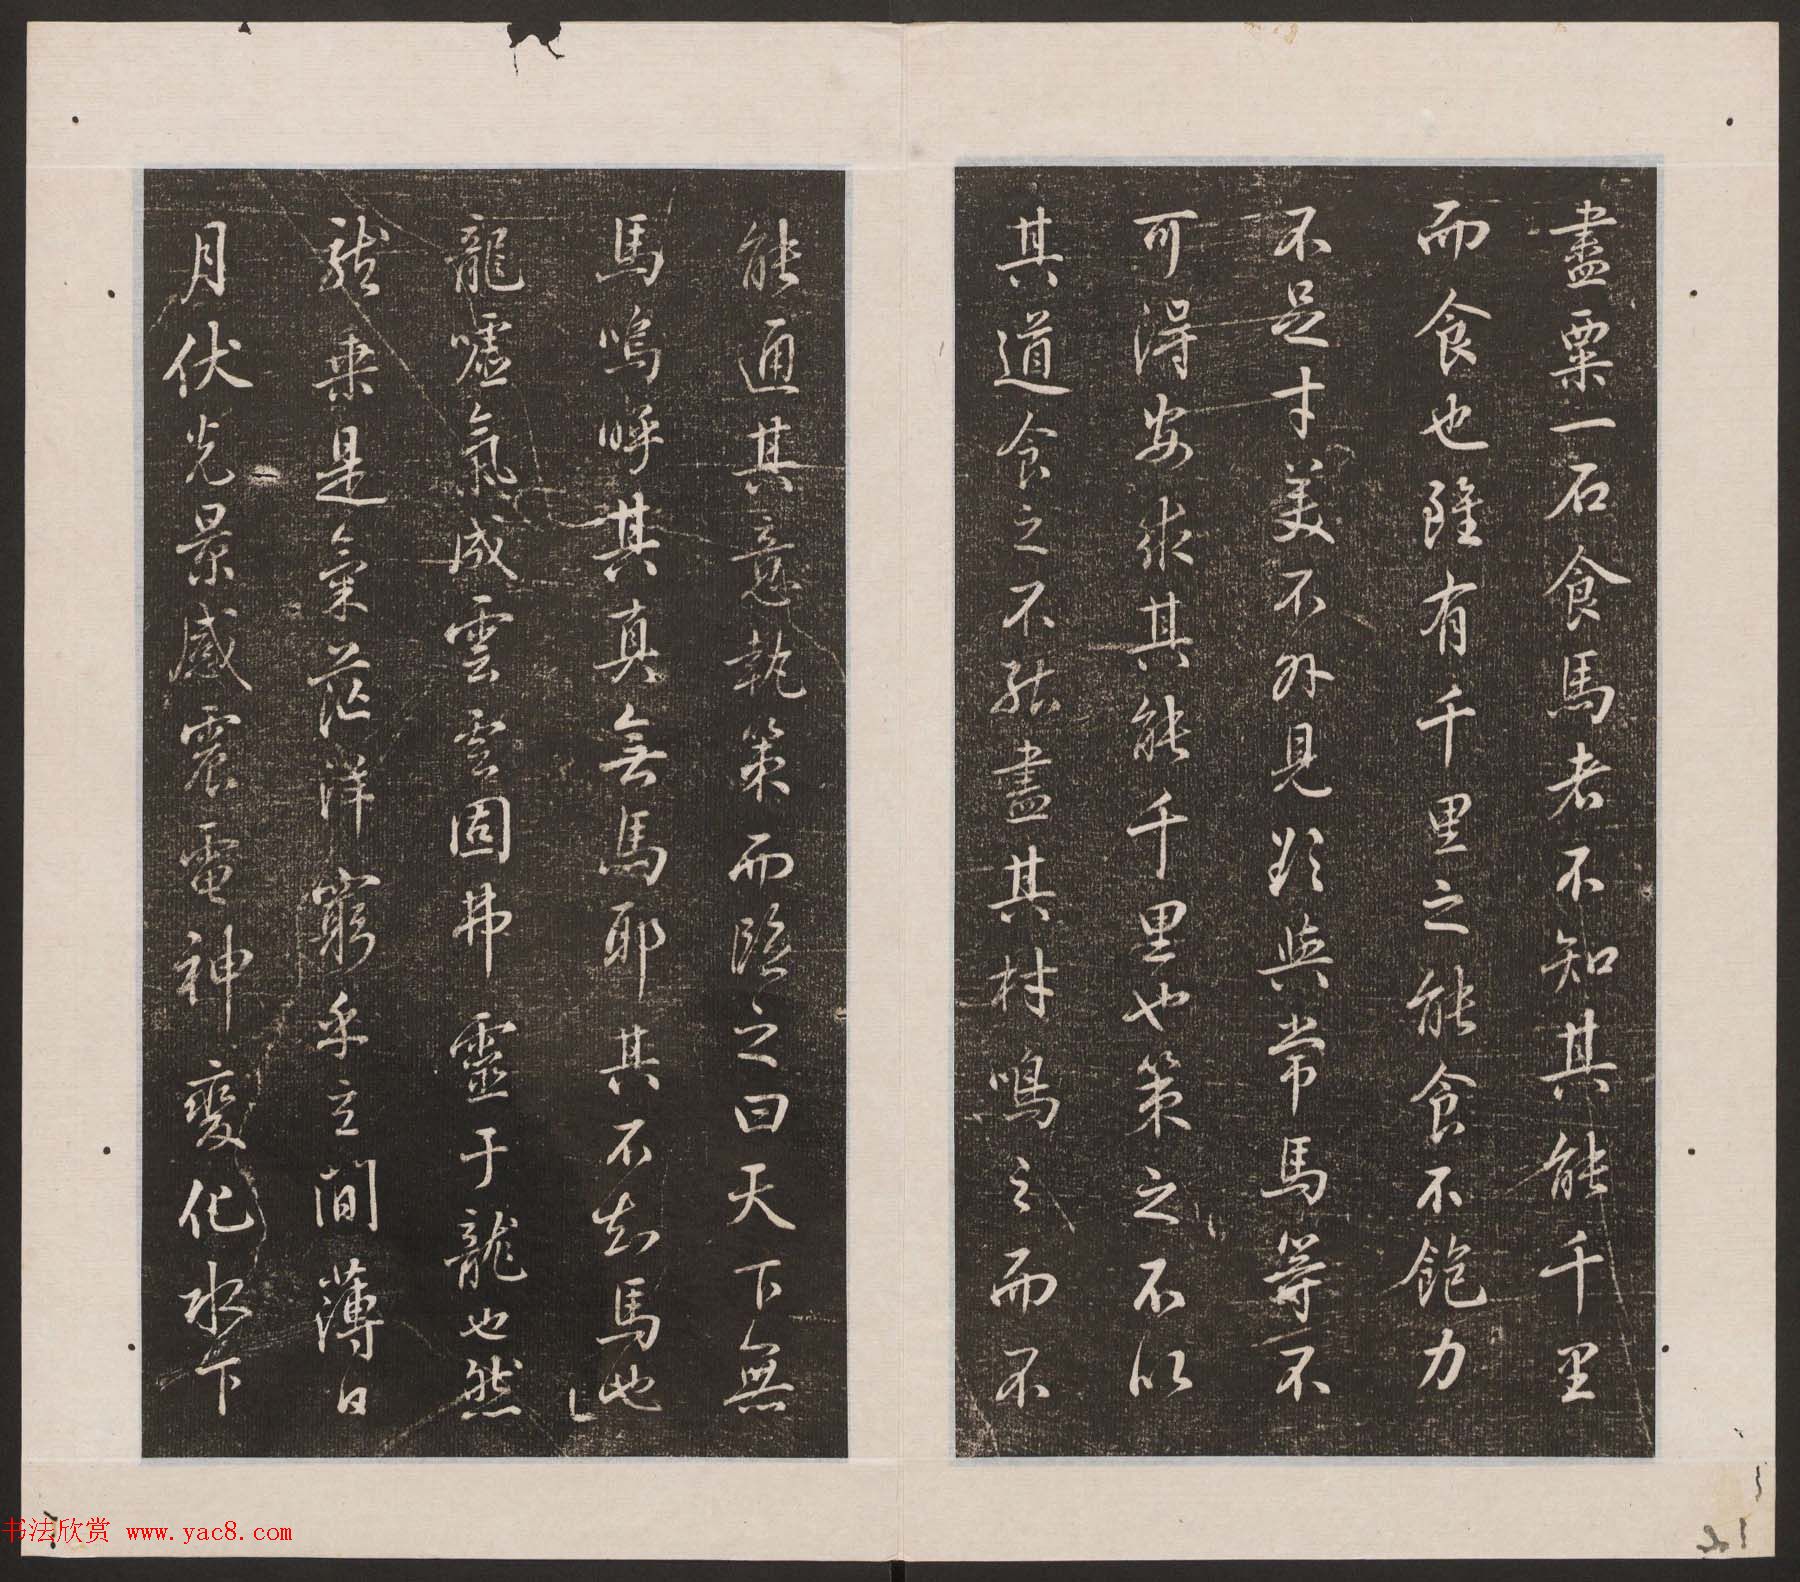 盡粟一石食馬者不知其能千里
而食也雖有千里之能食不飽力
不足才美不外見欲與常馬等不
可得安求其能千里也策之不以
其道食之不能盡其材鳴之而不
能通其意執策而臨之曰天下無
馬嗚呼其真無馬耶其不知馬也
龍噓氣成雲雲固弗靈于龍也然
龍乗是氣茫洋窮乎玄間薄日
月伏光景感震電神變化水下
书法欣赏 www.yac8.com